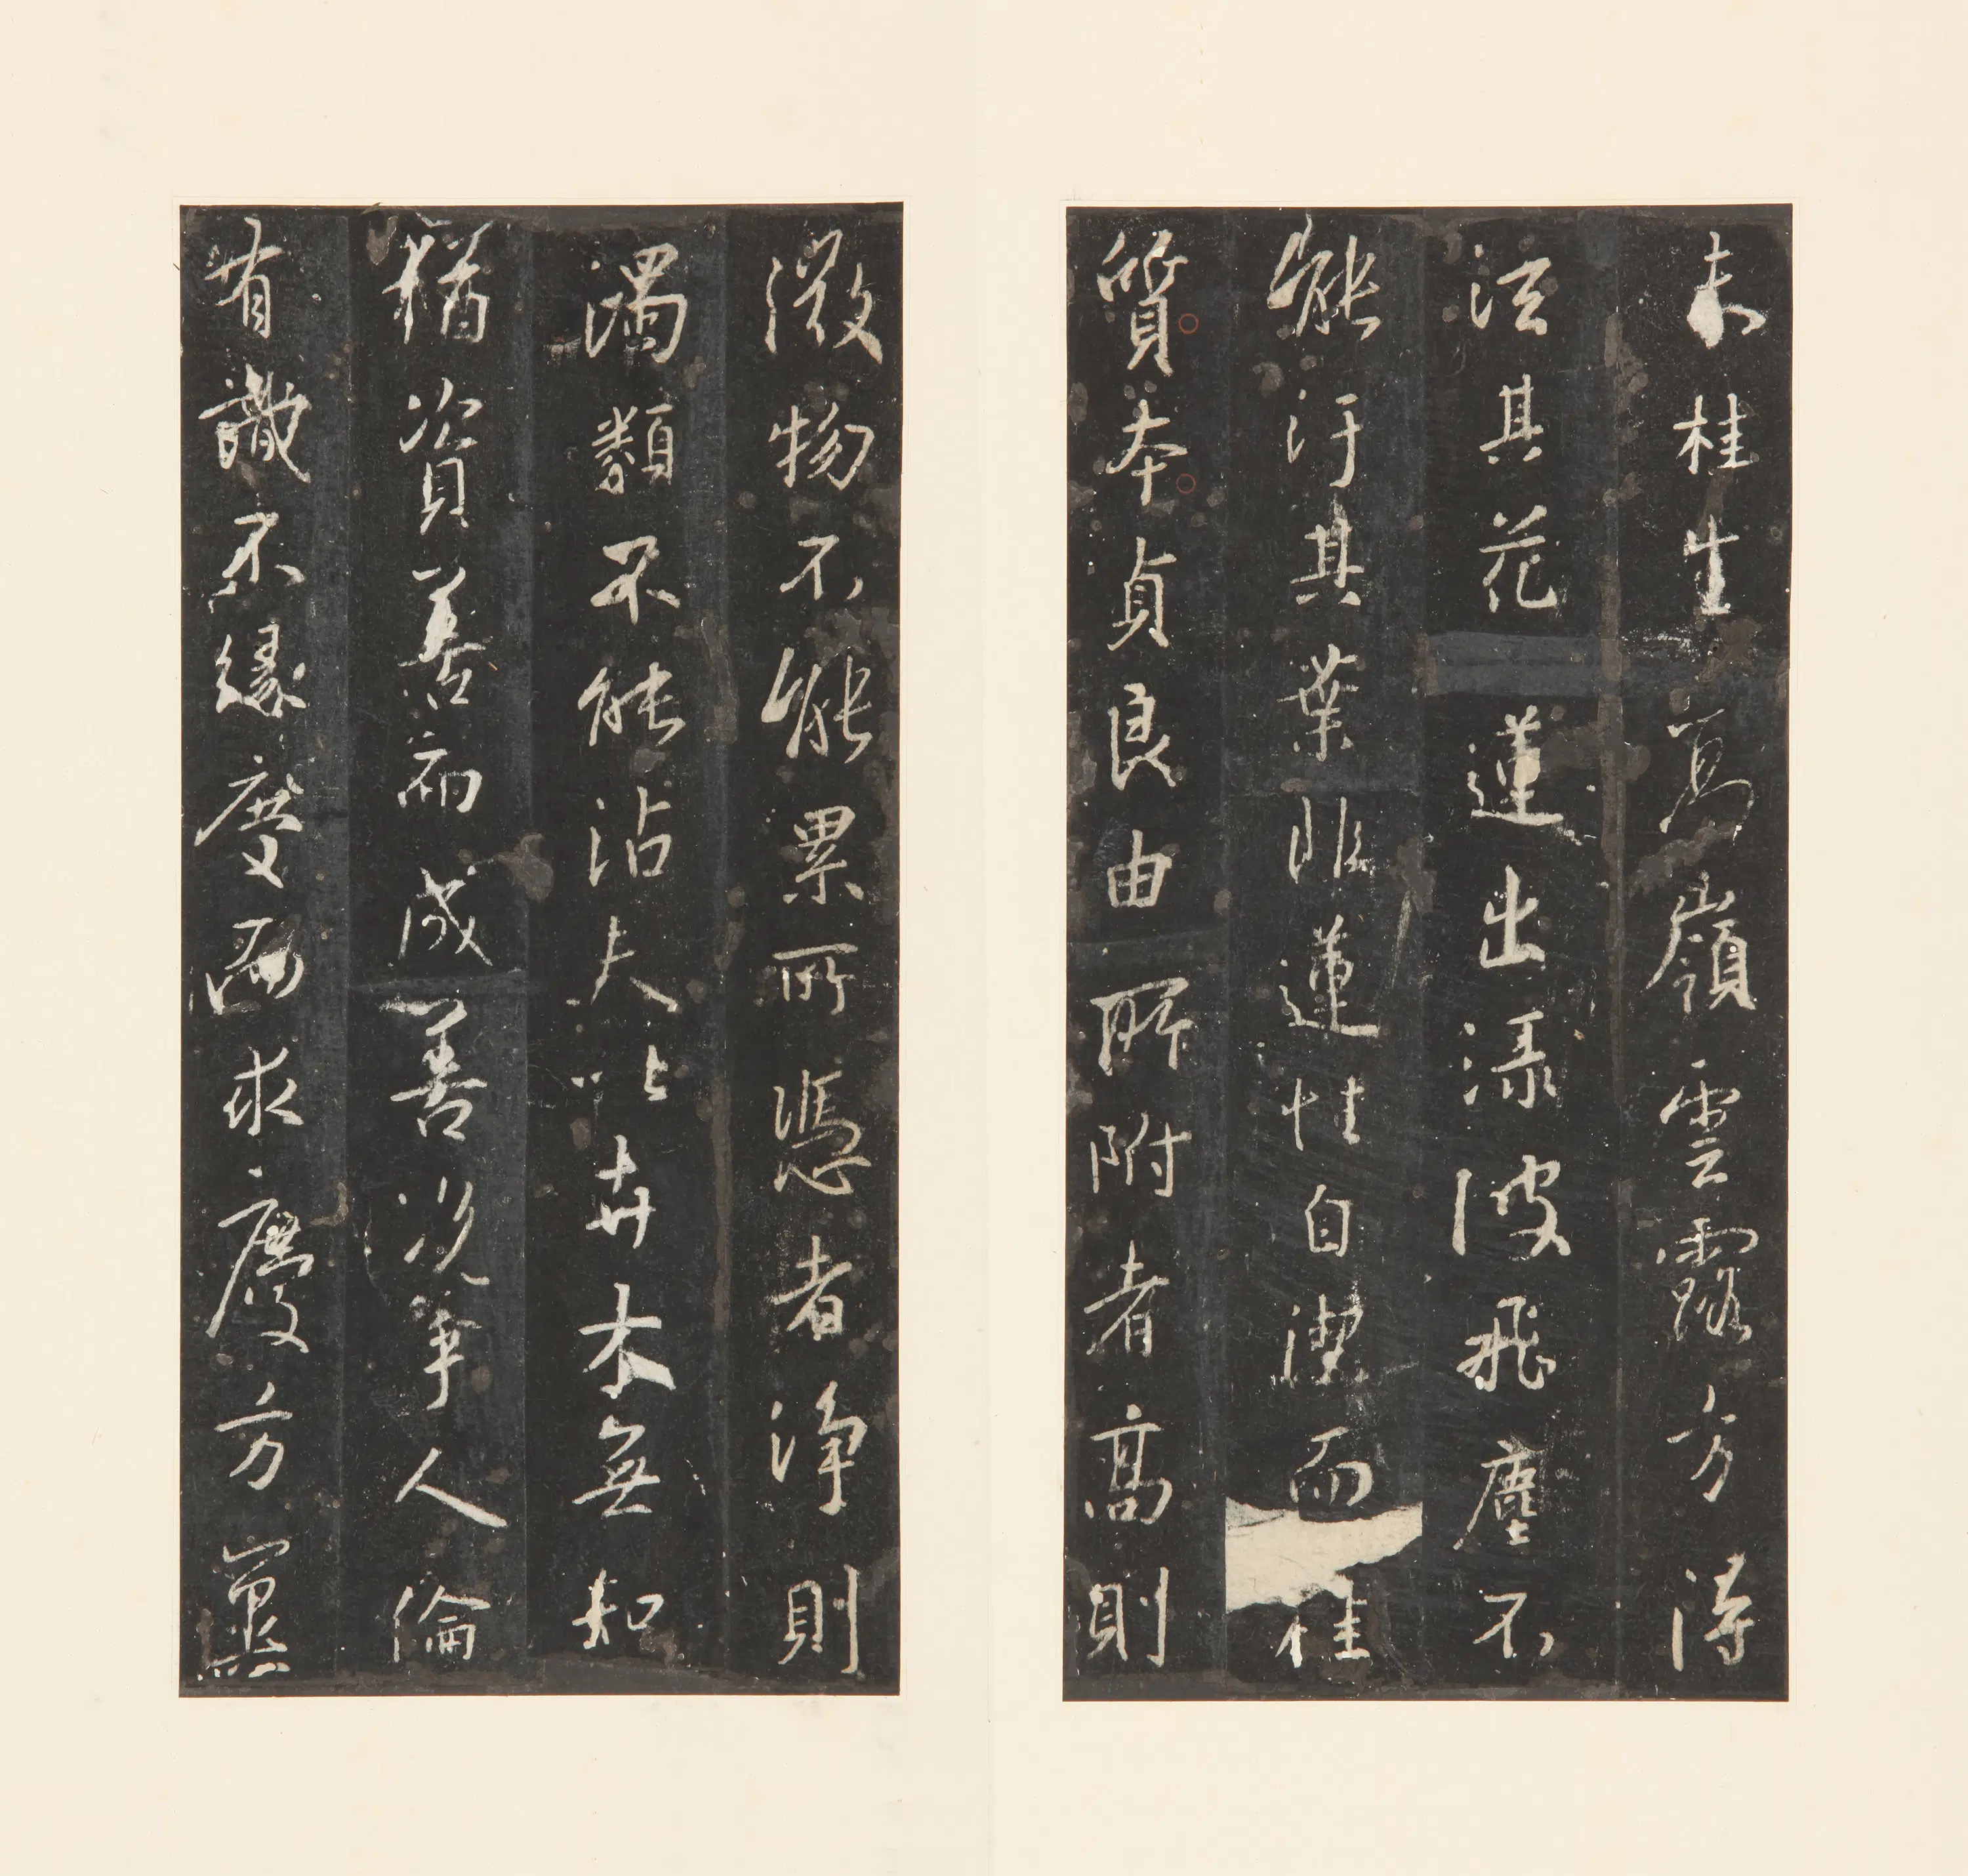 夫桂生高嶺雲露方得
泫其花蓮出渌波飛塵不
能汙其葉非蓮性自潔而
桂
質本貞良由所附者高則
微物不能累所憑者淨則
濁類不能沾夫以卉木無知
猶資善而成善況乎人倫
有識不緣慶而求慶方冀